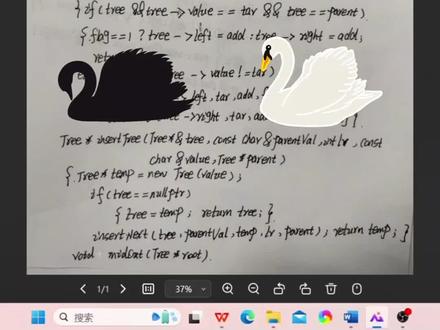 { if(tree && tree -> value == tar && tree == parent)
{ flag==1 ? tree -> left = add : tree -> right = add;
tree -> value != tar)
left, tar, add,
-> right, tar, add
Tree* insertTree(Tree*& tree, const char& parentVal, int lr, const
char& value, Tree* parent)
{ Tree* temp = new Tree(value);
if(tree==nullptr)
{ tree=temp; return tree; }
insertNext(tree, parentVal, temp, lr, parent); return temp; }
void midOut(Tree* root).
1/1
37%
搜索